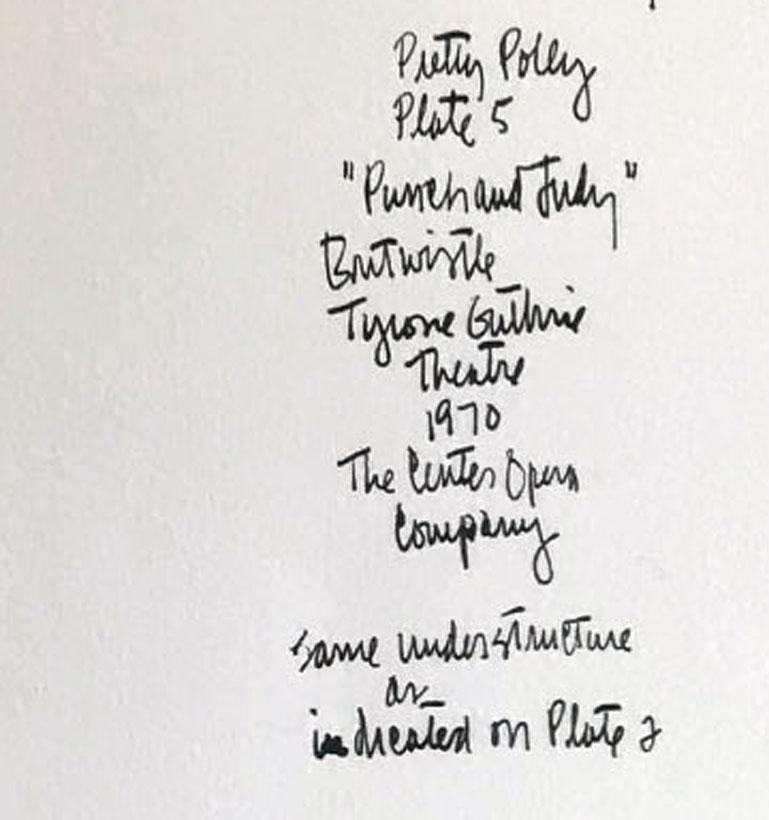 Pretty Polly
Plate 5
"Punch and Judy"
Birtwistle
Tyrone Guthrie
Theatre
1970
The Center Opera
Company
same understructure
as
indicated on Plate 2